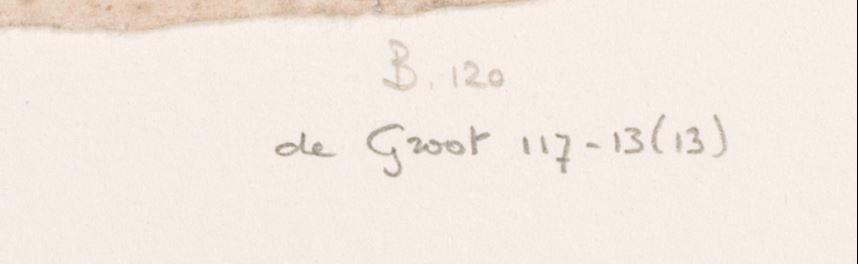 B. 120
de Groot 117-13(13)